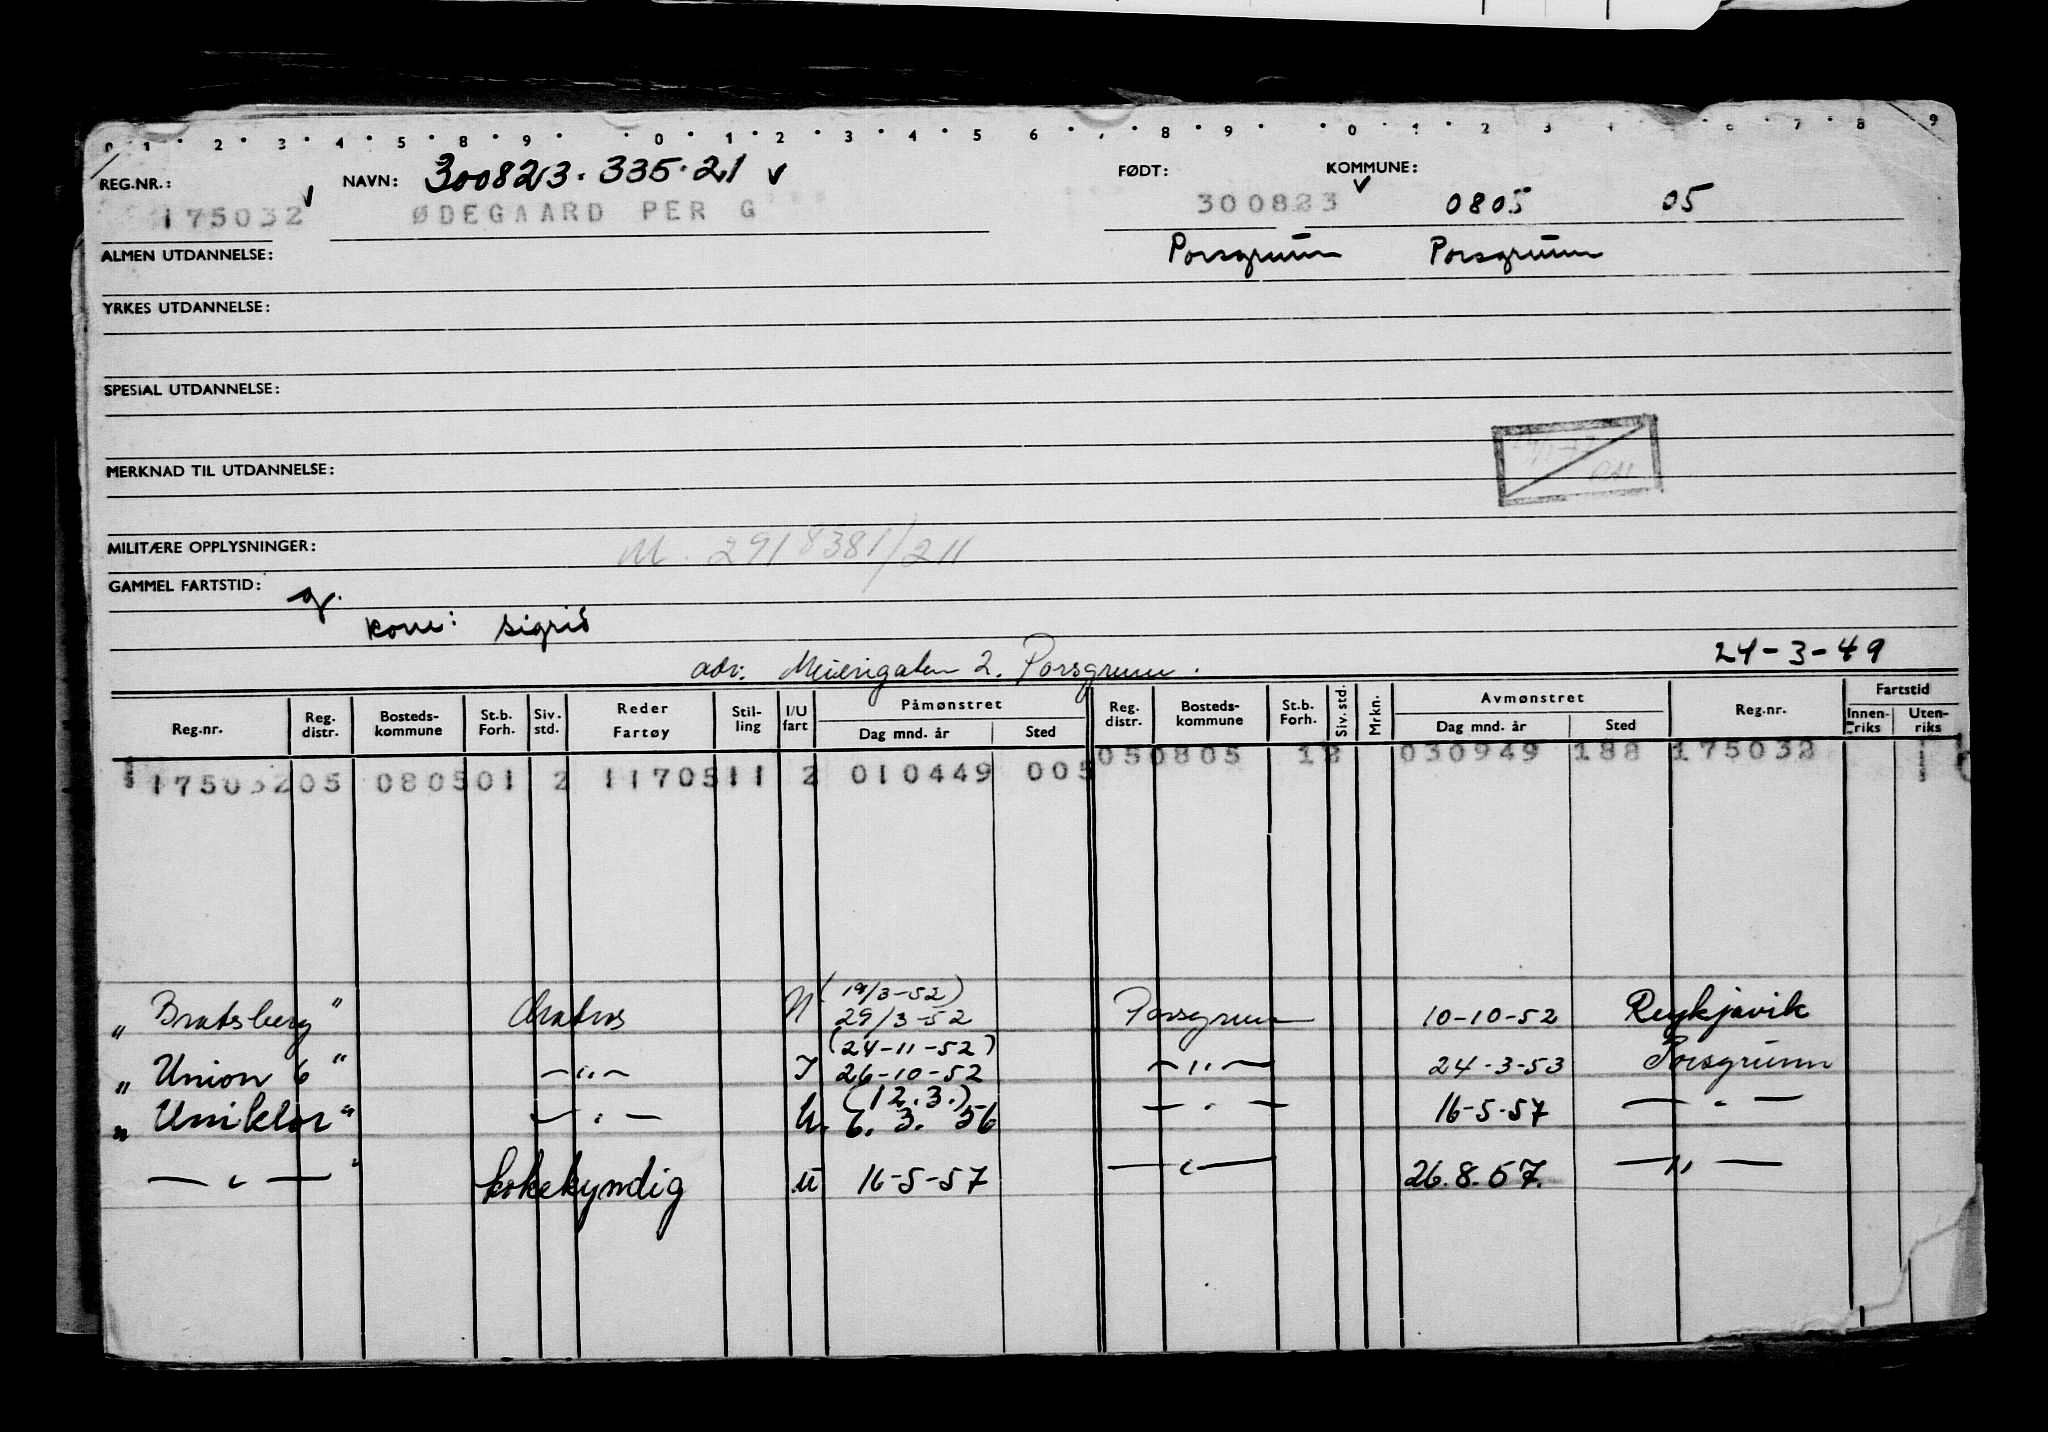 0 1 2 3 4 5 8 9 0 1 2 3 4 5 6 8 9 0 1 2 3 7 8 9
REG.NR.: NAVN: 300823.335.21 FØDT: KOMMUNE:
175032 ØDEGAARD PER G 300823 0805 05
ALMEN UTDANNELSE: Porsgrunn Porsgrunn
YRKES UTDANNELSE:
SPESIAL UTDANNELSE:
MERKNAD TIL UTDANNELSE:
MILITÆRE OPPLYSNINGER: M. 2918381/211
GAMMEL FARTSTID: g.
kone: Sigrid
24-3-49
adr: Meierigaten 2. Porsgrunn.
Reg.nr. Reg. distr. Bosteds-kommune St.b. Forh. Siv. std. Reder Fartøy Stil-ling I/U fart Påmønstret Dag mnd. år Sted Reg. distr. Bosteds-kommune St.b. Forh. Siv. std. Mrkn. Avmønstret Dag mnd. år Sted Reg.nr. Fartstid Innen-riks Uten-riks
175032 05 0805 01 2 1170511 2 010449 005 05 0805 12 030949 188 175032
(19/3-52)
„ Bratsberg " Matros U 29/3-52 Porsgrunn 10-10-52 Reykjavik
(24-11-52)
„ Union 6 " —"— I 26-10-52 —"— 24-3-53 Porsgrunn
(12.3.)
„ Uniklor " —"— U. 6.3.56 —"— 16-5-57 —"—
—"— " kokekyndig U 16-5-57 —"— 26.8.57. —"—